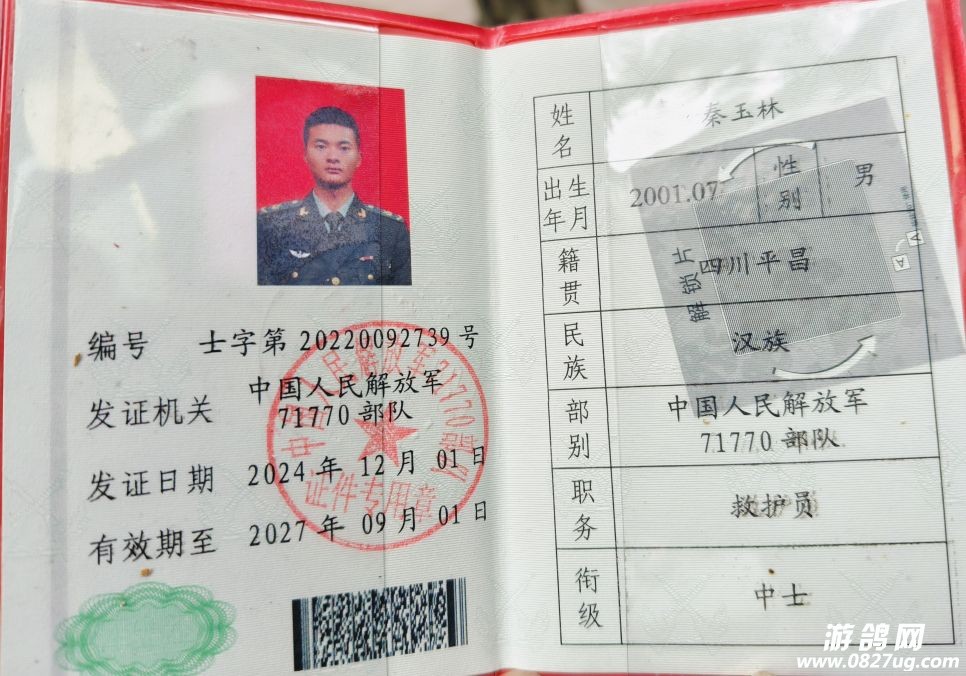 编号 士字第 20220092739 号
发证机关 中国人民解放军
71770 部队
发证日期 2024 年 12 月 01 日
有效期至 2027 年 09 月 01 日
中国人民解放军71770部队
证件专用章
姓名 秦玉林
出生年月 2001.07 性别 男
籍贯 四川平昌
民族 汉族
部别 中国人民解放军
71770 部队
职务 救护员
衔级 中士
游鸽网
www.0827ug.com